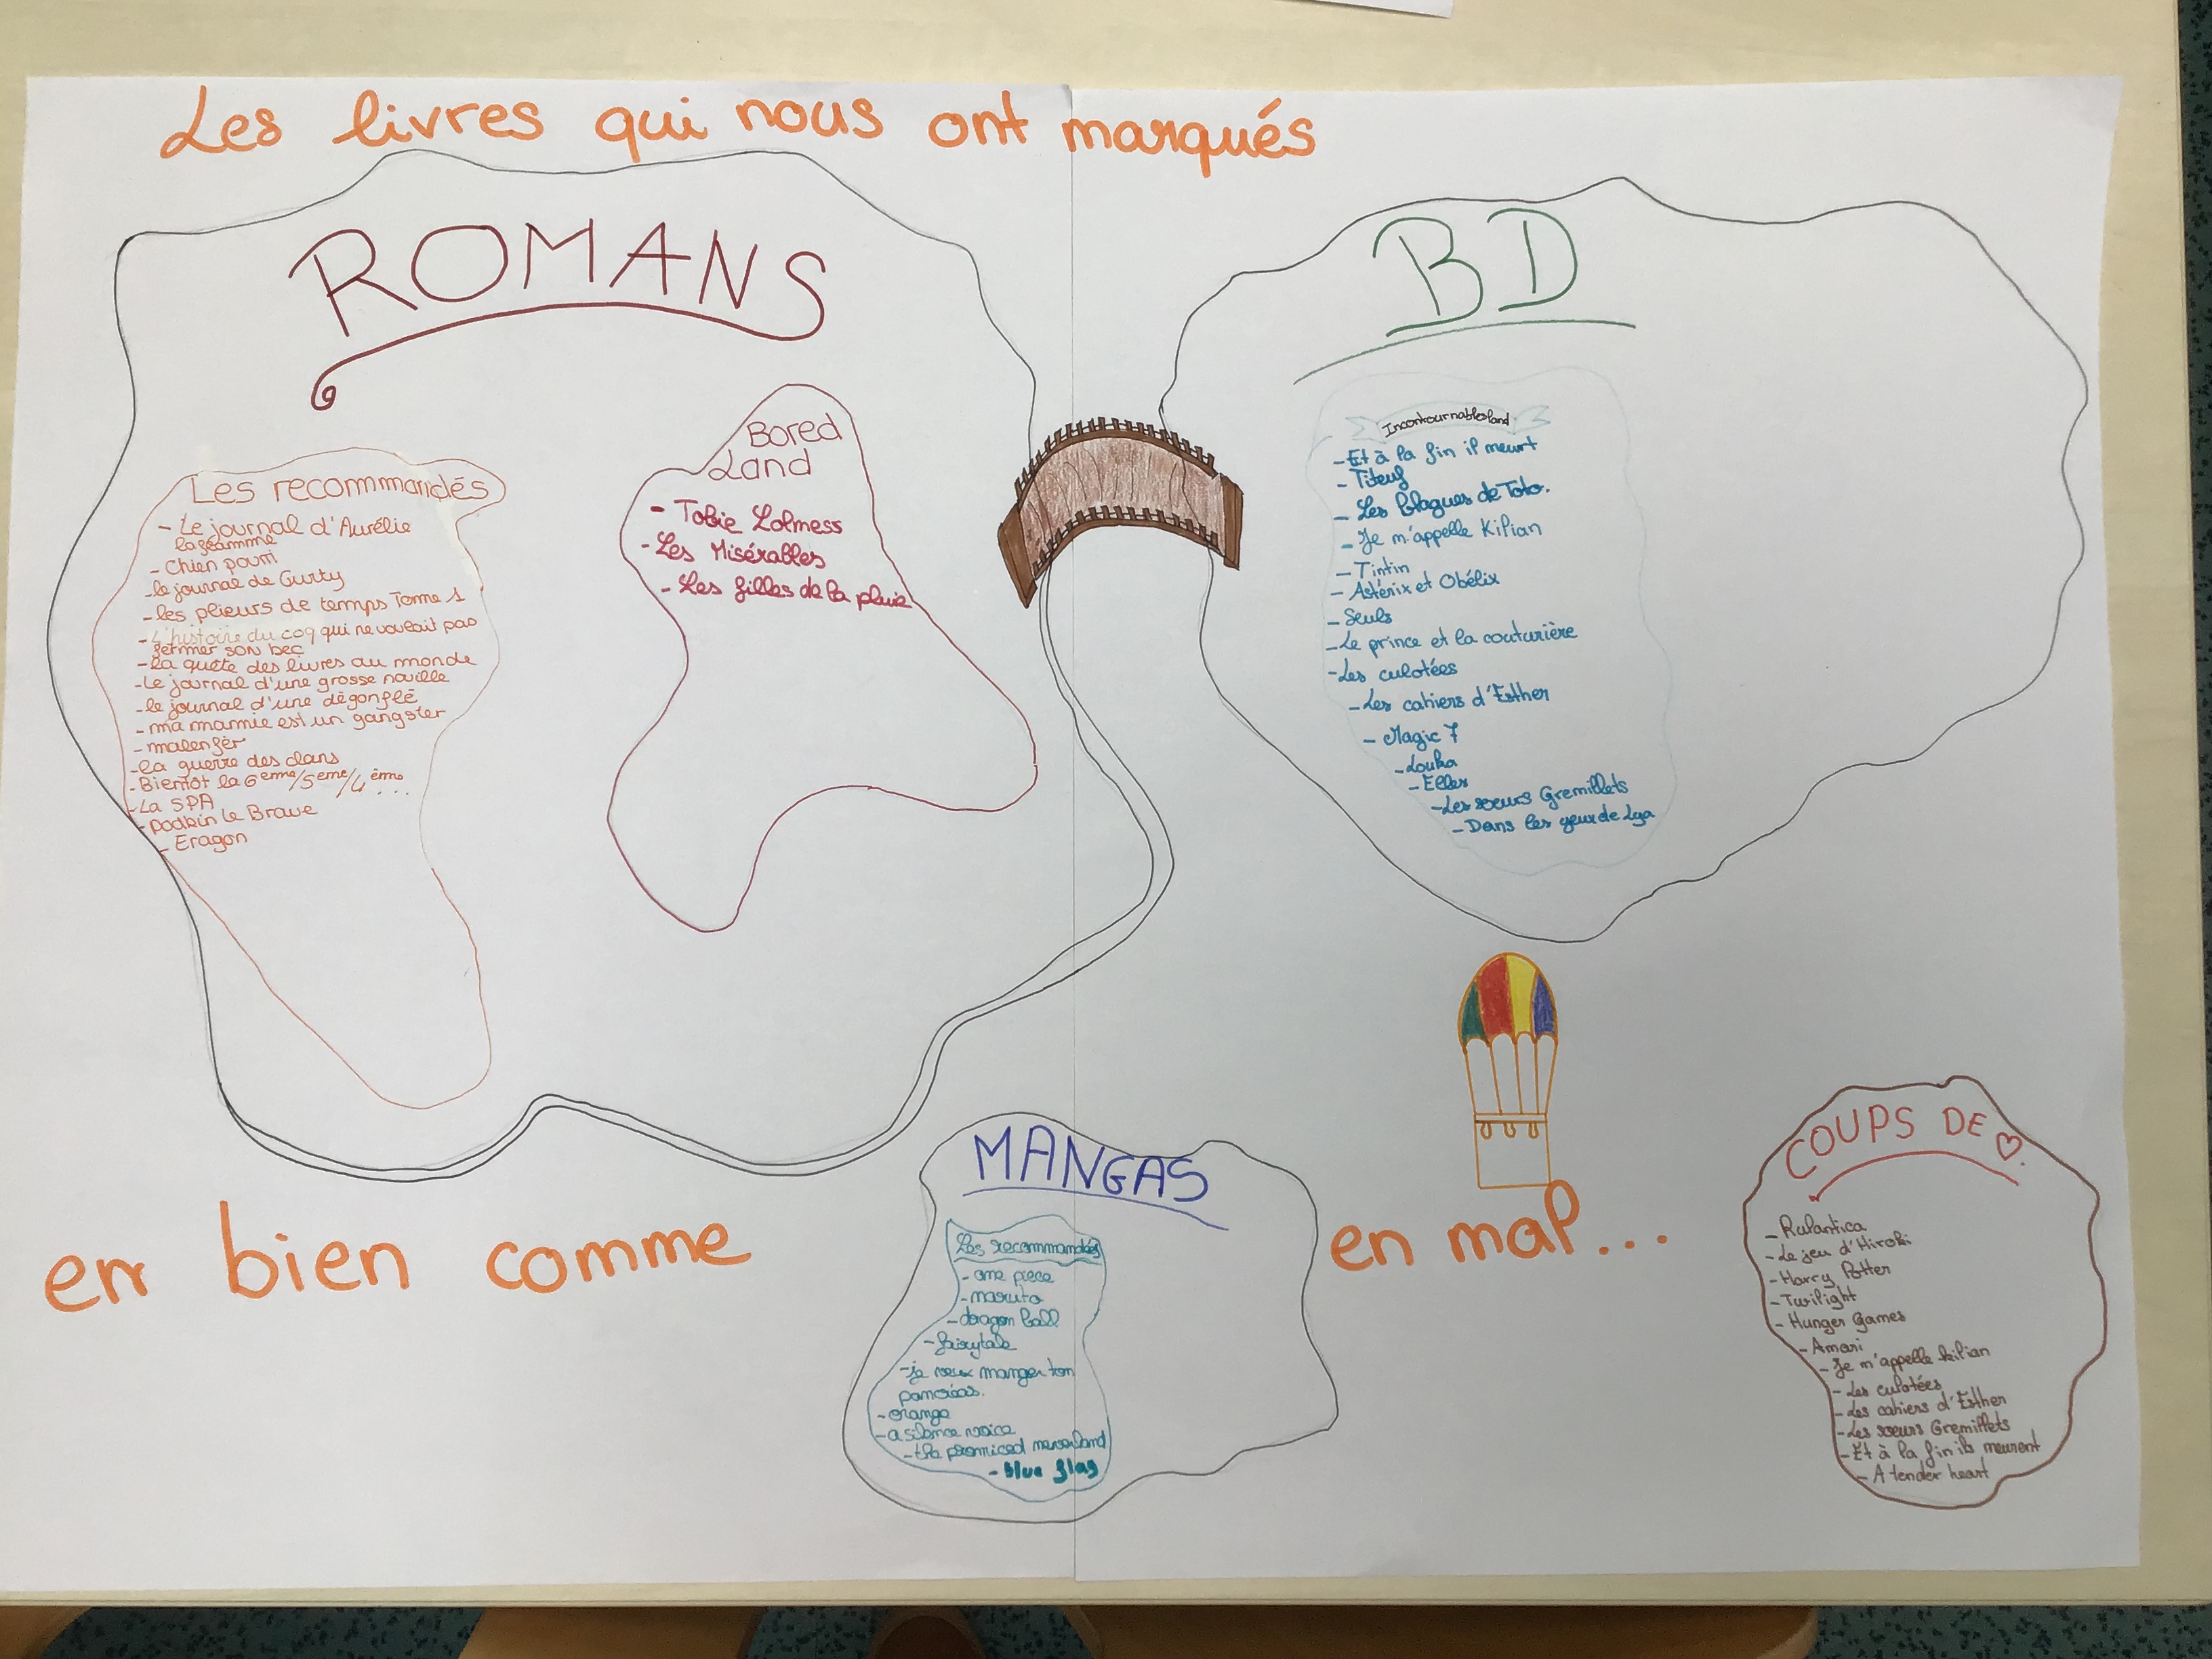 Les livres qui nous ont marqués
ROMANS
Les recommandés
- Le journal d'Aurélie
laflamme
- Chien pourri
- le journal de Gurty
- les plieurs de temps Tome 1
- L'histoire du coq qui ne voulait pas
fermer son bec
- la quête des livres au monde
- Le journal d'une grosse nouille
- le journal d'une dégonflé
- ma mamie est un gangster
- malenfer
- la guerre des clans
- Bientôt la 6ème/5ème/4ème...
- La SPA
- podkin le Brave
- Eragon
Bored
Land
- Tobie Lolmess
- Les Misérables
- Les filles de la pluie
BD
Incontournablesland
- Et à la fin il meurt
- Titeuf
- Les blagues de Toto.
- Je m'appelle Kilian
- Tintin
- Astérix et Obélix
- Seuls
- Le prince et la couturière
- Les culotées
- Les cahiers d'Esther
- Magic 7
- Louka
- Elles
- Les soeurs Gremillets
- Dans les yeux de Lya
en bien comme
MANGAS
Les recommandés
- one piece
- naruto
- dragon ball
- fairytale
- je veux manger ton
pancréas.
- orange
- a silence voice
- the promiced neverland
- blue flag
en mal...
COUPS DE ♡.
- Rulantica
- Le jeu d'Hiroki
- Harry Potter
- Twilight
- Hunger Games
- Amari
- Je m'appelle kilian
- Les culotées
- Les cahiers d'Esther
- Les soeurs Gremillets
- Et à la fin ils meurent
- A tender heart